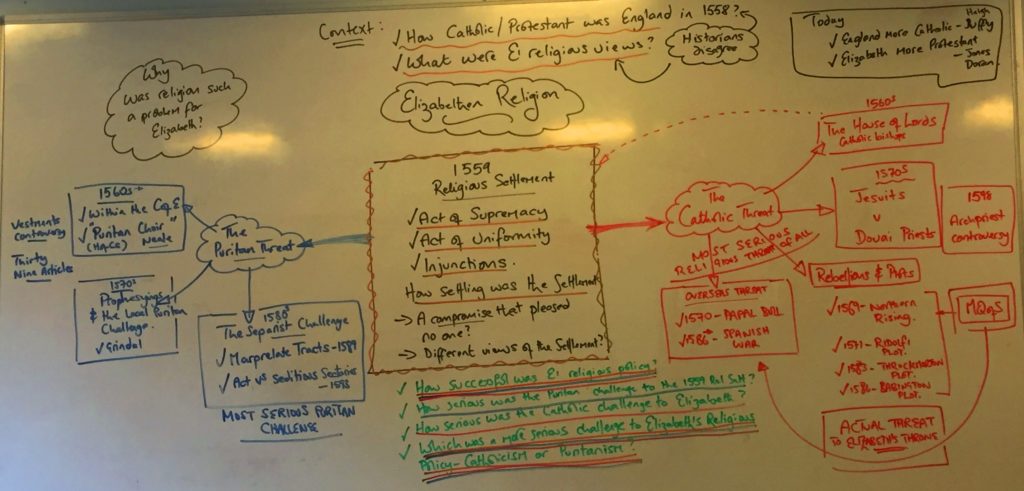 Context: ✓ How Catholic/Protestant was England in 1558?
✓ What were E1 religious views?
Historians
Disagree
Today
✓ England More Catholic - Haigh
Duffy
✓ Elizabeth More Protestant
- Jones
Doran
Why
was religion such
a problem for
Elizabeth?
Elizabethan Religion
1559
Religious Settlement
✓ Act of Supremacy
✓ Act of Uniformity
✓ Injunctions.
How settling was the Settlement
→ A compromise that pleased
no one?
→ Different views of the Settlement?
The
Puritan Threat
1560s
✓ Within the C of E
✓ "Puritan Choir"
(H of C) Neale
Vestments
controversy
Thirty
Nine Articles
1570s
Prophesyings
& the Local Puritan
Challenge.
✓ Grindal
1580s
The Separist Challenge
✓ Marprelate Tracts - 1589
✓ Act vs Seditious Sectaries
MOST SERIOUS PURITAN
CHALLENGE
The
Catholic Threat
1560s
The House of Lords
Catholic bishops
1570s
Jesuits
v
Douai Priests
1598
Archpriest
controversy
MOST SERIOUS
RELIGIOUS THREAT OF ALL
OVERSEAS THREAT
✓ 1570 - PAPAL BULL
✓ 1586 → SPANISH
WAR
Rebellions & Plots
✓ 1569 - Northern
Rising.
✓ 1571 - RIDOLFI
PLOT.
✓ 1583 - THROCKMORTON
PLOT.
✓ 1586 - BABINGTON
PLOT.
MQoS
ACTUAL THREAT
TO ELIZABETH'S THRONE
✓ How successful was E1 religious policy?
✓ How serious was the Puritan challenge to the 1559 Rel Sett?
✓ How serious was the Catholic challenge to Elizabeth?
✓ Which was a more serious challenge to Elizabeth's Religious
Policy - Catholicism or Puritanism?